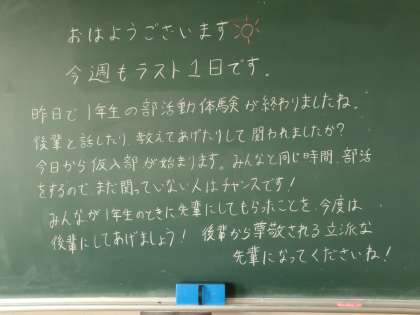 おはようございます
今週もラスト1日です。
昨日で1年生の部活動体験が終わりましたね。
後輩と話したり、教えてあげたりして関われましたか?
今日から仮入部が始まります。みんなと同じ時間、部活
をするので、まだ関っていない人はチャンスです!
みんなが1年生のときに先輩にしてもらったことを、今度は
後輩にしてあげましょう! 後輩から尊敬される立派な
先輩になってくださいね!